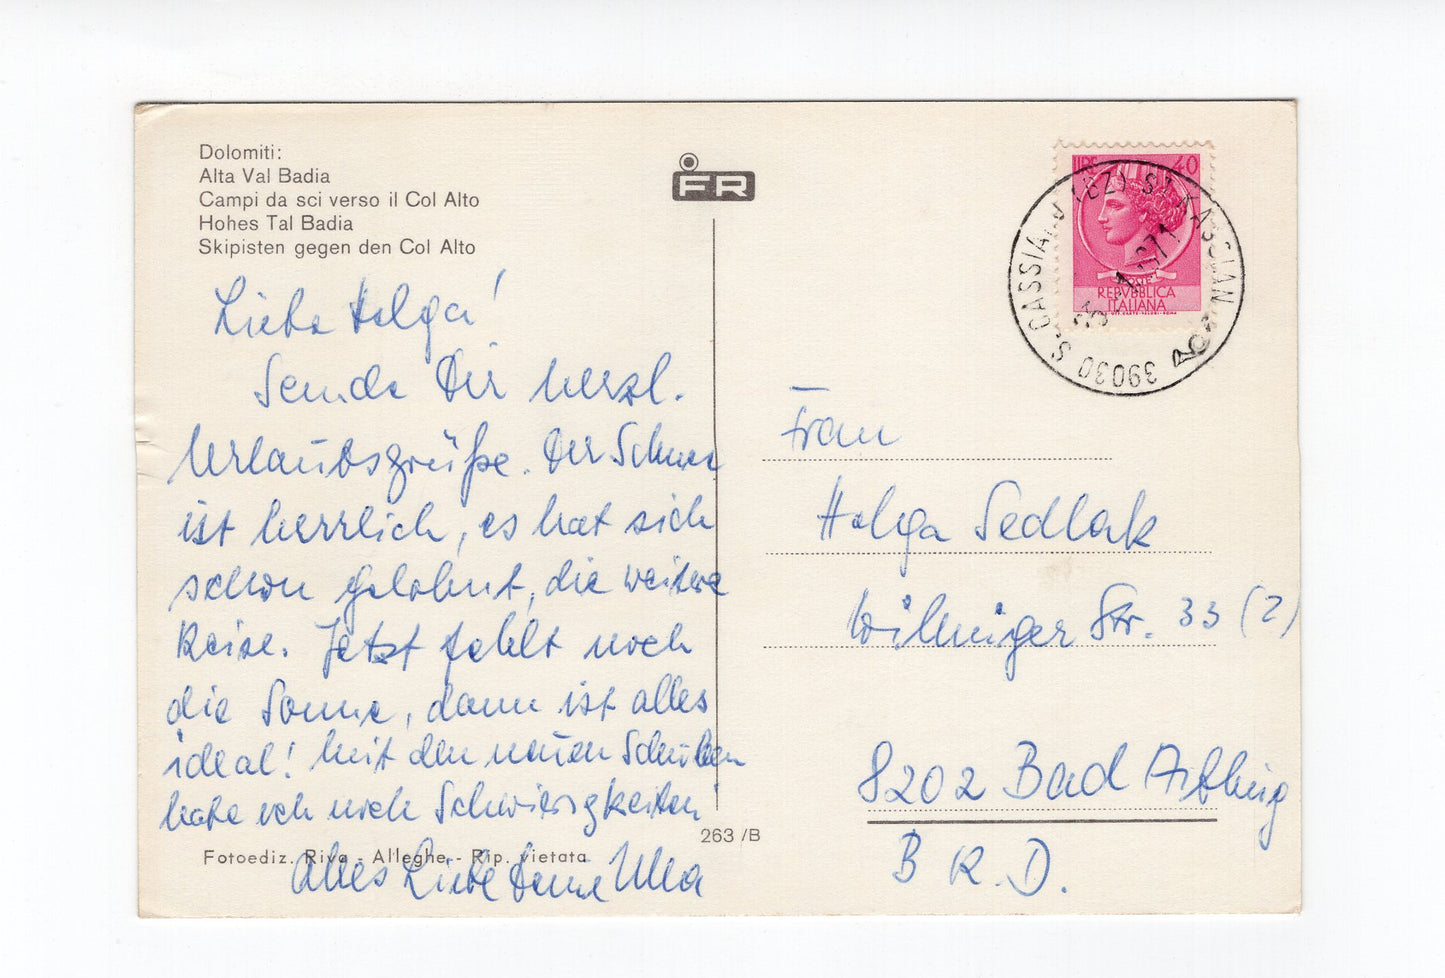 Dolomiti:
Alta Val Badia
Campi da sci verso il Col Alto
Hohes Tal Badia
Skipisten gegen den Col Alto
FR
LIRE 40
POSTE
REPVBBLICA
ITALIANA
39030 S. CASSIANO (BZ) ST. KASSIAN
Liebe Helga!
Sende Dir herzl.
Urlaubsgrüße. Der Schnee
ist herrlich, es hat sich
schon gelohnt, die weitere
Reise. Jetzt fehlt noch
die Sonne, dann ist alles
ideal! Mit den neuen Schuhen
habe ich noch Schwierigkeiten!
Alles Liebe Deine Ulla
Fotoediz. Riva - Alleghe - Rip. vietata
263/B
Frau
Helga Sedlak
Str. 33 (2)
8202 Bad Aibling
B R. D.